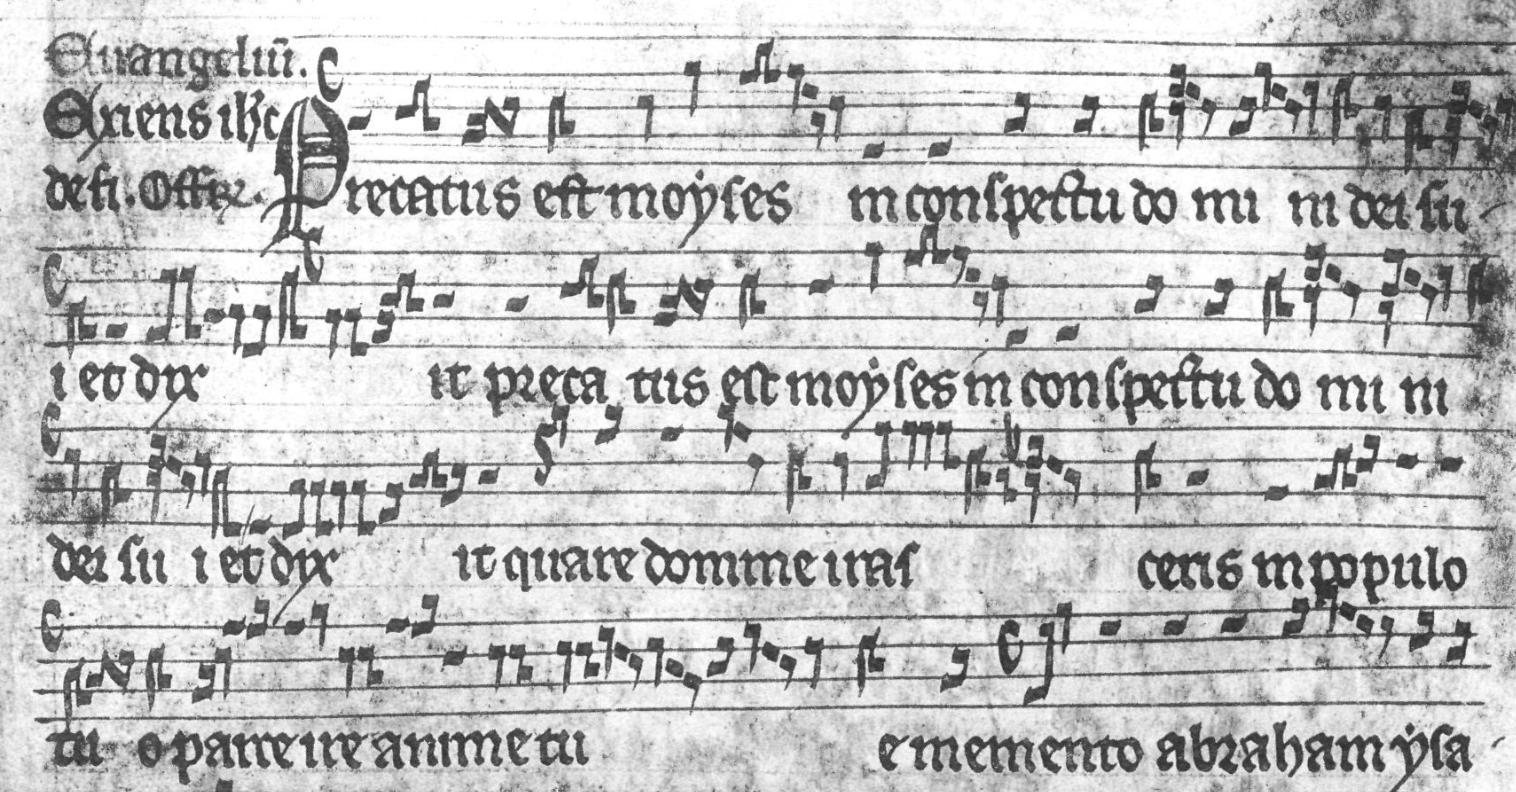 Euangeliū.
Exiens ihc
de fi. Offer.
Precatus est moyses in conspectu do mi ni dei su
i et dix it preca tus est moyses in conspectu do mi ni
dei su i et dix it quare domine iras ceris in populo
tu o parce ire anime tu e memento abraham ysa